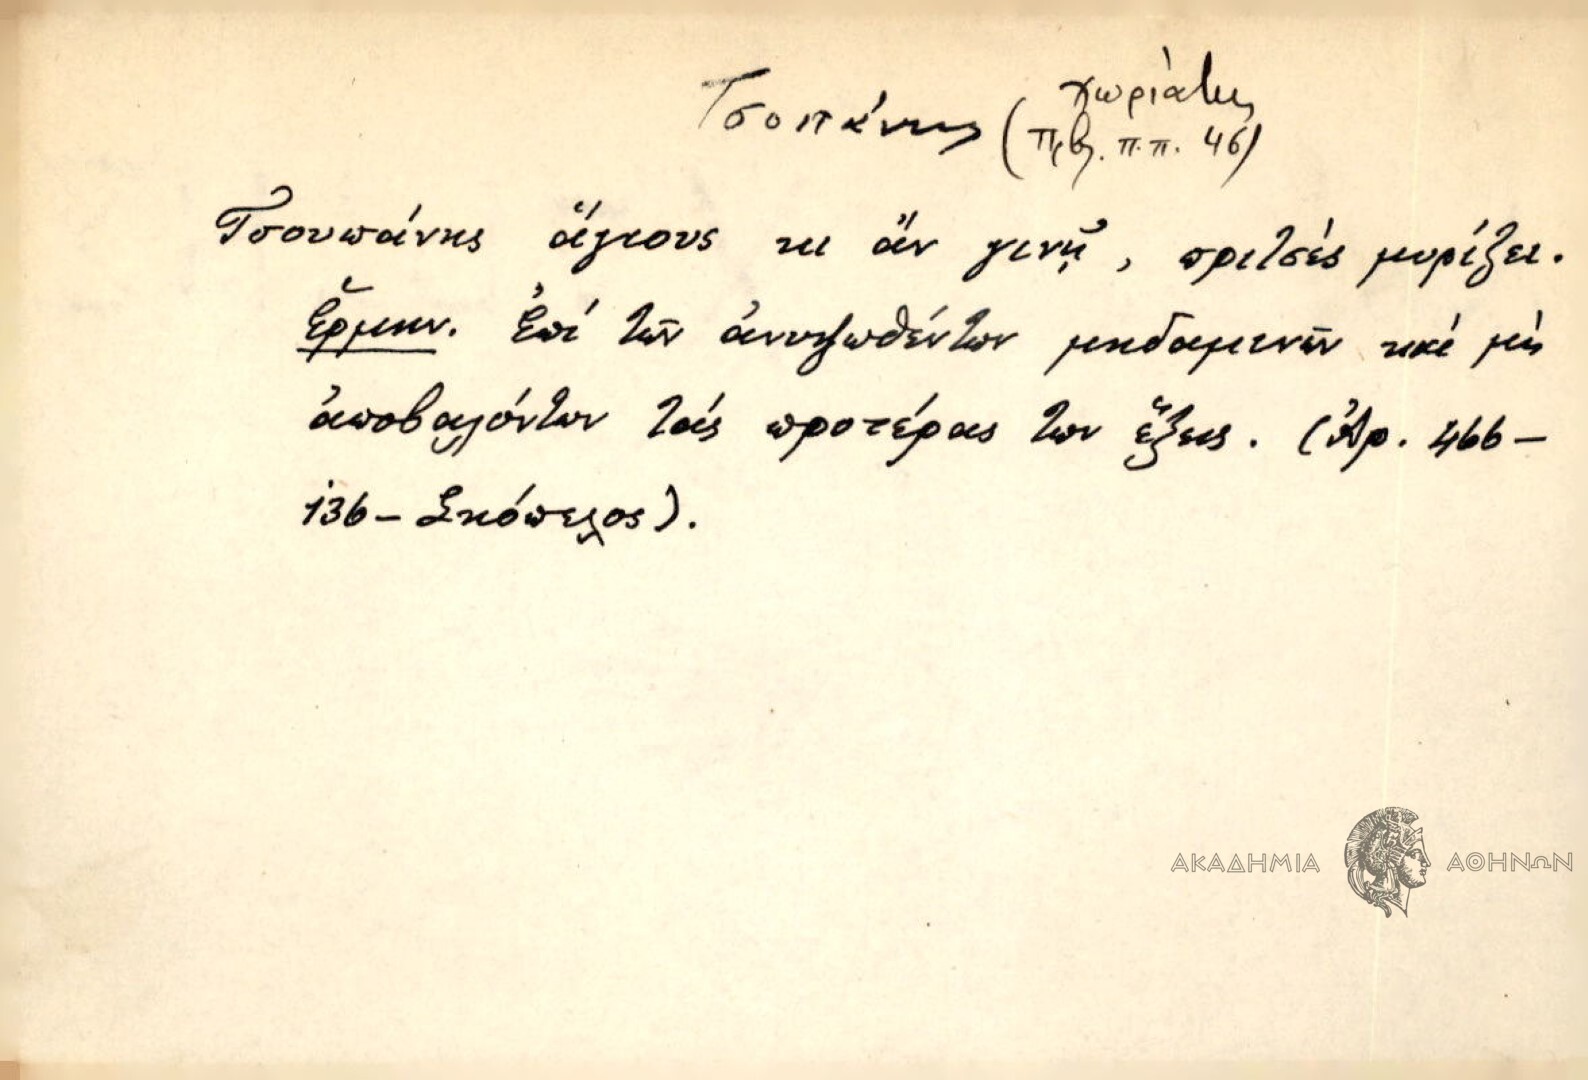 Τσοπάνης (χωριάτης
Πρβλ. π.π. 46)
Τσουπάνης ἅγιους κι ἄν γινῇ, πριτσές μυρίζει.
Ἑρμην. Ἐπί τῶν ἀνυψωθέντων μηδαμινῶν καί μή
ἀποβαλόντων τάς προτέρας των ἕξεις. (Ἀρ. 466-
136- Σκόπελος).
ΑΚΑΔΗΜΙΑ ΑΘΗΝΩΝ